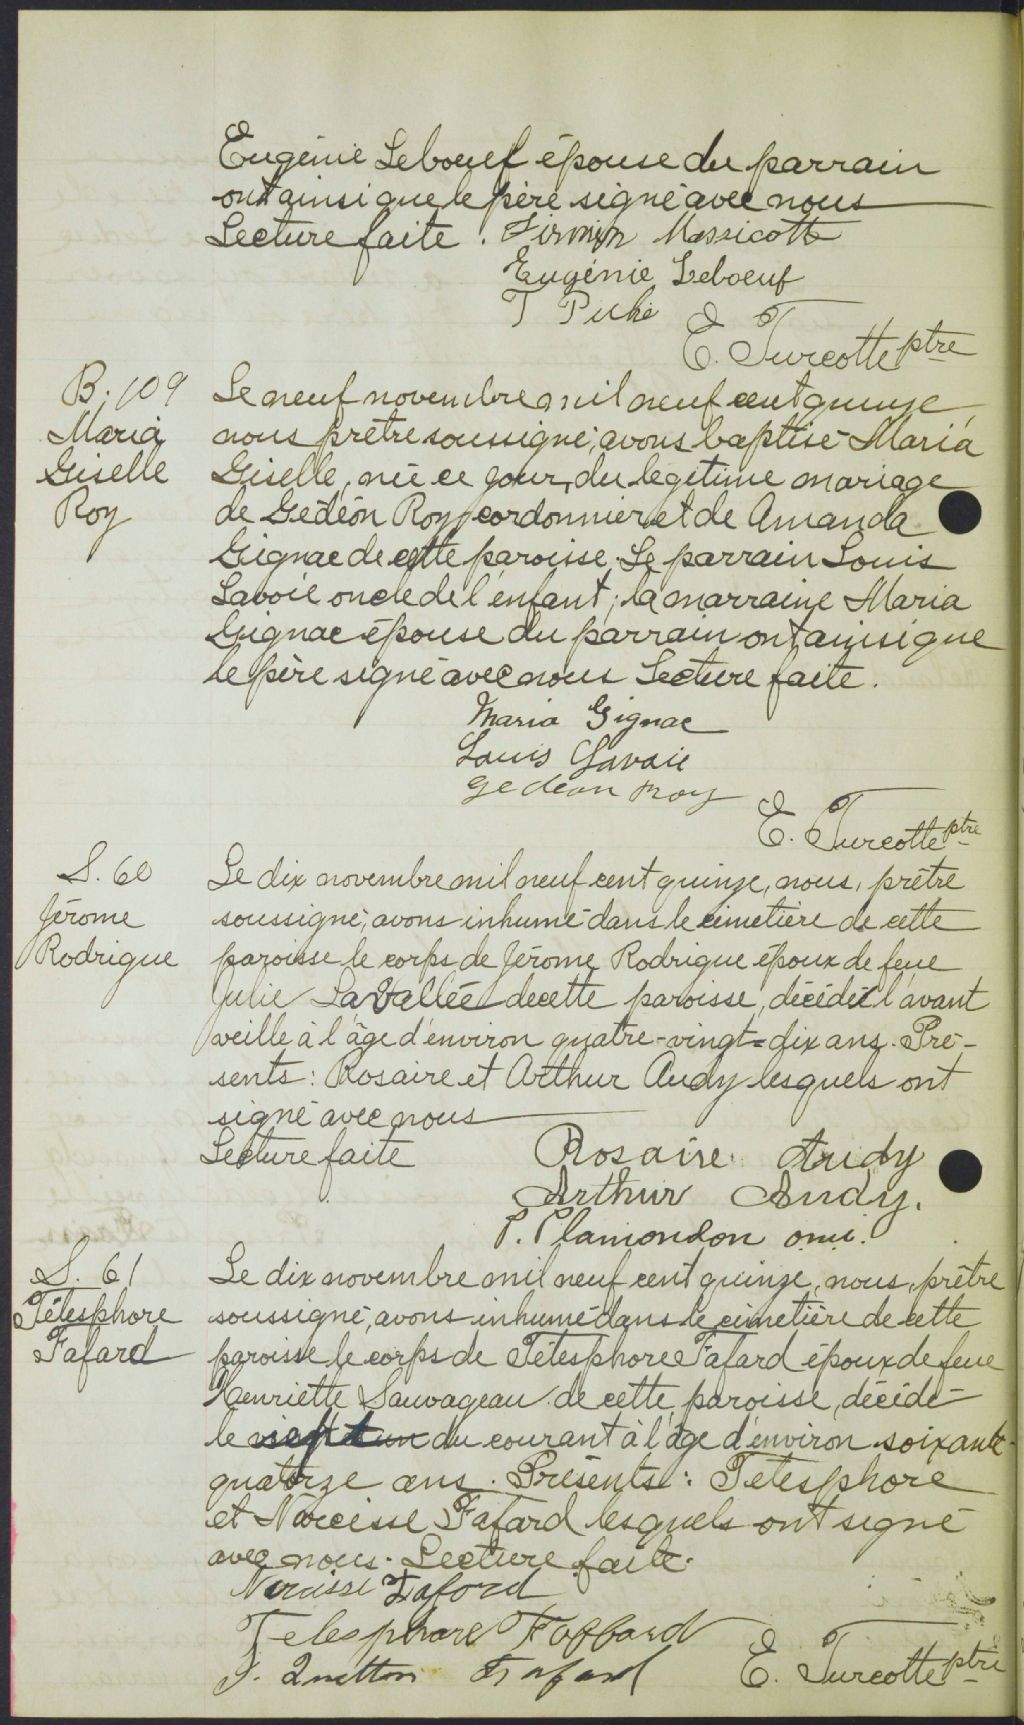 Eugénie Leboeuf épouse du parrain
ont ainsi que le père signé avec nous
Lecture faite. Firmin Massicotte
Eugénie Leboeuf
T Piché
E. Turcotte ptre
B. 109
Maria
Giselle
Roy
Le neuf novembre mil neuf cent quinze,
nous prêtre soussigné, avons baptisé Maria
Giselle, née ce jour, du légitime mariage
de Gédéon Roy, cordonnier et de Amanda
Gignac de cette paroisse. Le parrain Louis
Savoie oncle de l'enfant; la marraine Maria
Gignac épouse du parrain ont ainsi que
le père signé avec nous Lecture faite.
Maria Gignac
Louis Savoie
Gedeon Roy
E. Turcotte ptre
S. 60
Jérome
Rodrigue
Le dix novembre mil neuf cent quinze, nous, prêtre
soussigné, avons inhumé dans le cimetière de cette
paroisse le corps de Jérome Rodrigue époux de feue
Julie Lavallée de cette paroisse, décédé l'avant
veille à l'âge d'environ quatre-vingt-dix ans. Pré-
sents: Rosaire et Arthur Audy lesquels ont
signé avec nous
Lecture faite
Rosaire Audy
Arthur Audy.
P. Plamondon omi.
S. 61
Télesphore
Fafard
Le dix novembre mil neuf cent quinze, nous, prêtre
soussigné, avons inhumé dans le cimetière de cette
paroisse le corps de Télesphore Fafard époux de feue
Henriette Sauvageau de cette paroisse, décédé
le du courant à l'âge d'environ soixante-
quatorze ans. Présents: Télesphore
et Narcisse Fafard lesquels ont signé
avec nous. Lecture faite.
Narcisse Faford
Telesphore Faffard
Fafard
E. Turcotte ptre